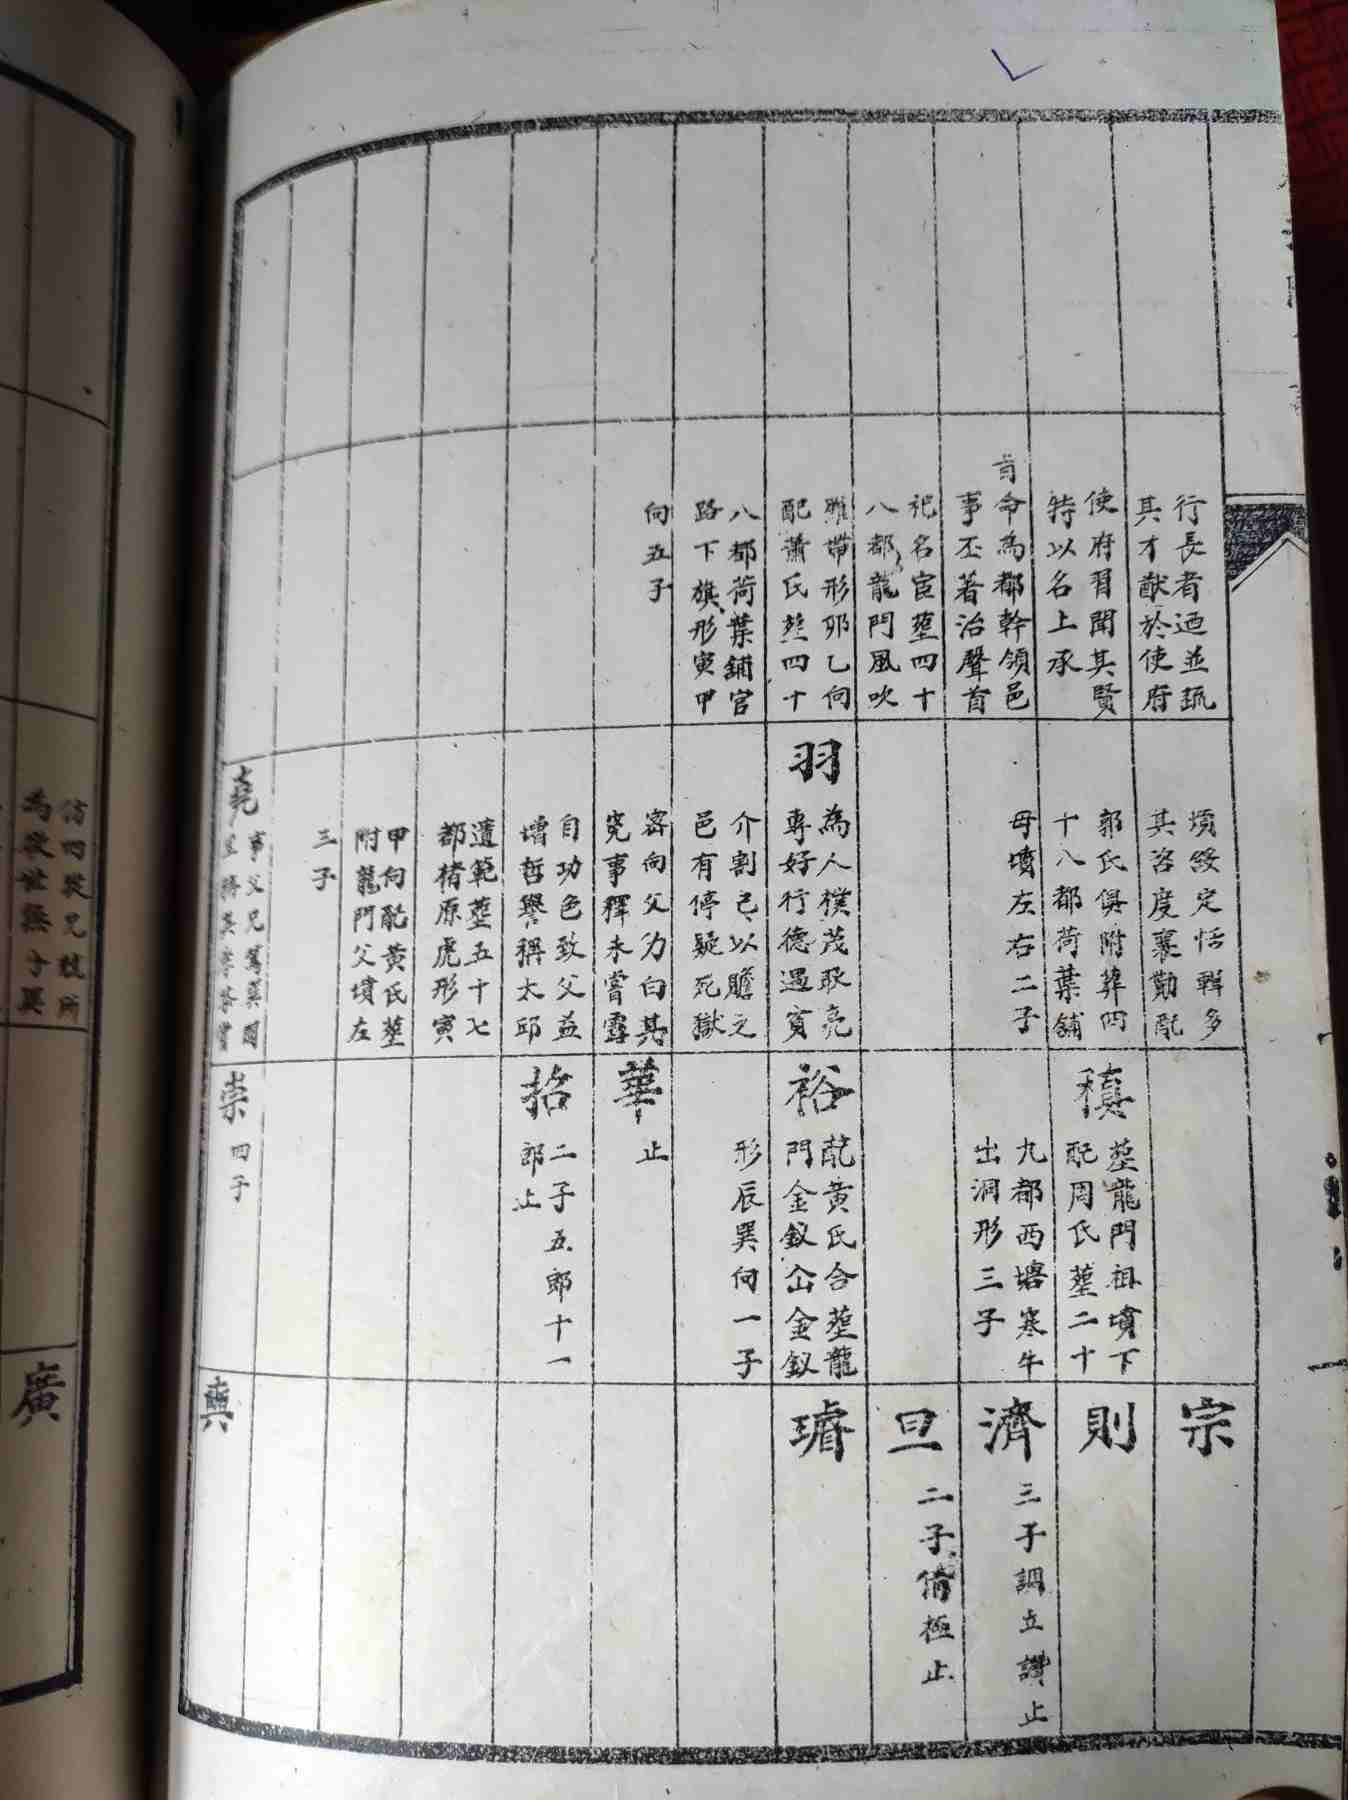 行長者迺並疏
其才猷於使府
使府習聞其賢
特以名上承
旨命為都幹領邑
事丕著治聲首
祀名宦塟四十
八都龍門風吹
雅帶形卯乙向
配蕭氏塟四十
八都荷葉鋪官
路下旗形寅甲
向五子
墳綏定恬輯多
其咨度襄勤配
郭氏俱附葬四
十八都荷葉舖
母墳左右二子
羽
為人樸茂耿亮
專好行德遇寅
介割己以贍之
邑有停疑死獄
密向父力白其
冤事釋未嘗露
自功色致父益
增哲譽稱太邱
遺範塟五十七
都楮原虎形寅
甲向配黃氏塟
附龍門父墳左
三子
堯
事父兄篤巽
禎
塟龍門祖墳下
配周氏塟二十
九都西塘寒牛
出洞形三子
裕
配黃氏合塟龍
門金釵仚金釵
形辰巽向一子
華
止
招
二子五郎十一
郎止
崇
四子
宗
則
濟
三子調立讚止
旦
二子脩極止
璿
輿
仿四從兄枝所
為後世無子巽
廣